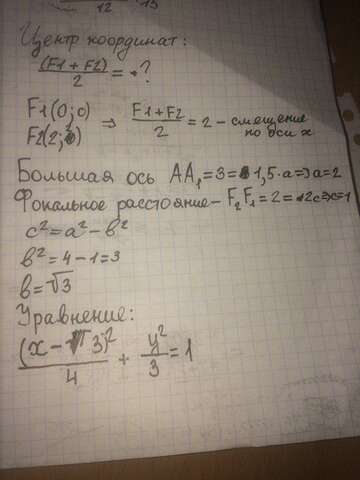 12 13
Центр координат:
(F1 + F2)/2 = ?
F1(0;0)
F2(2;0)
⇒ (F1+F2)/2 = 2 - смещение
по оси x
Большая ось AA₁=3= 1,5·a=>a=2
Фокальное расстояние - F₂F₁=2= 2c=>c=1
c²=a²-b²
b²=4-1=3
b=√3
Уравнение:
(x - 3)²/4 + y²/3 = 1